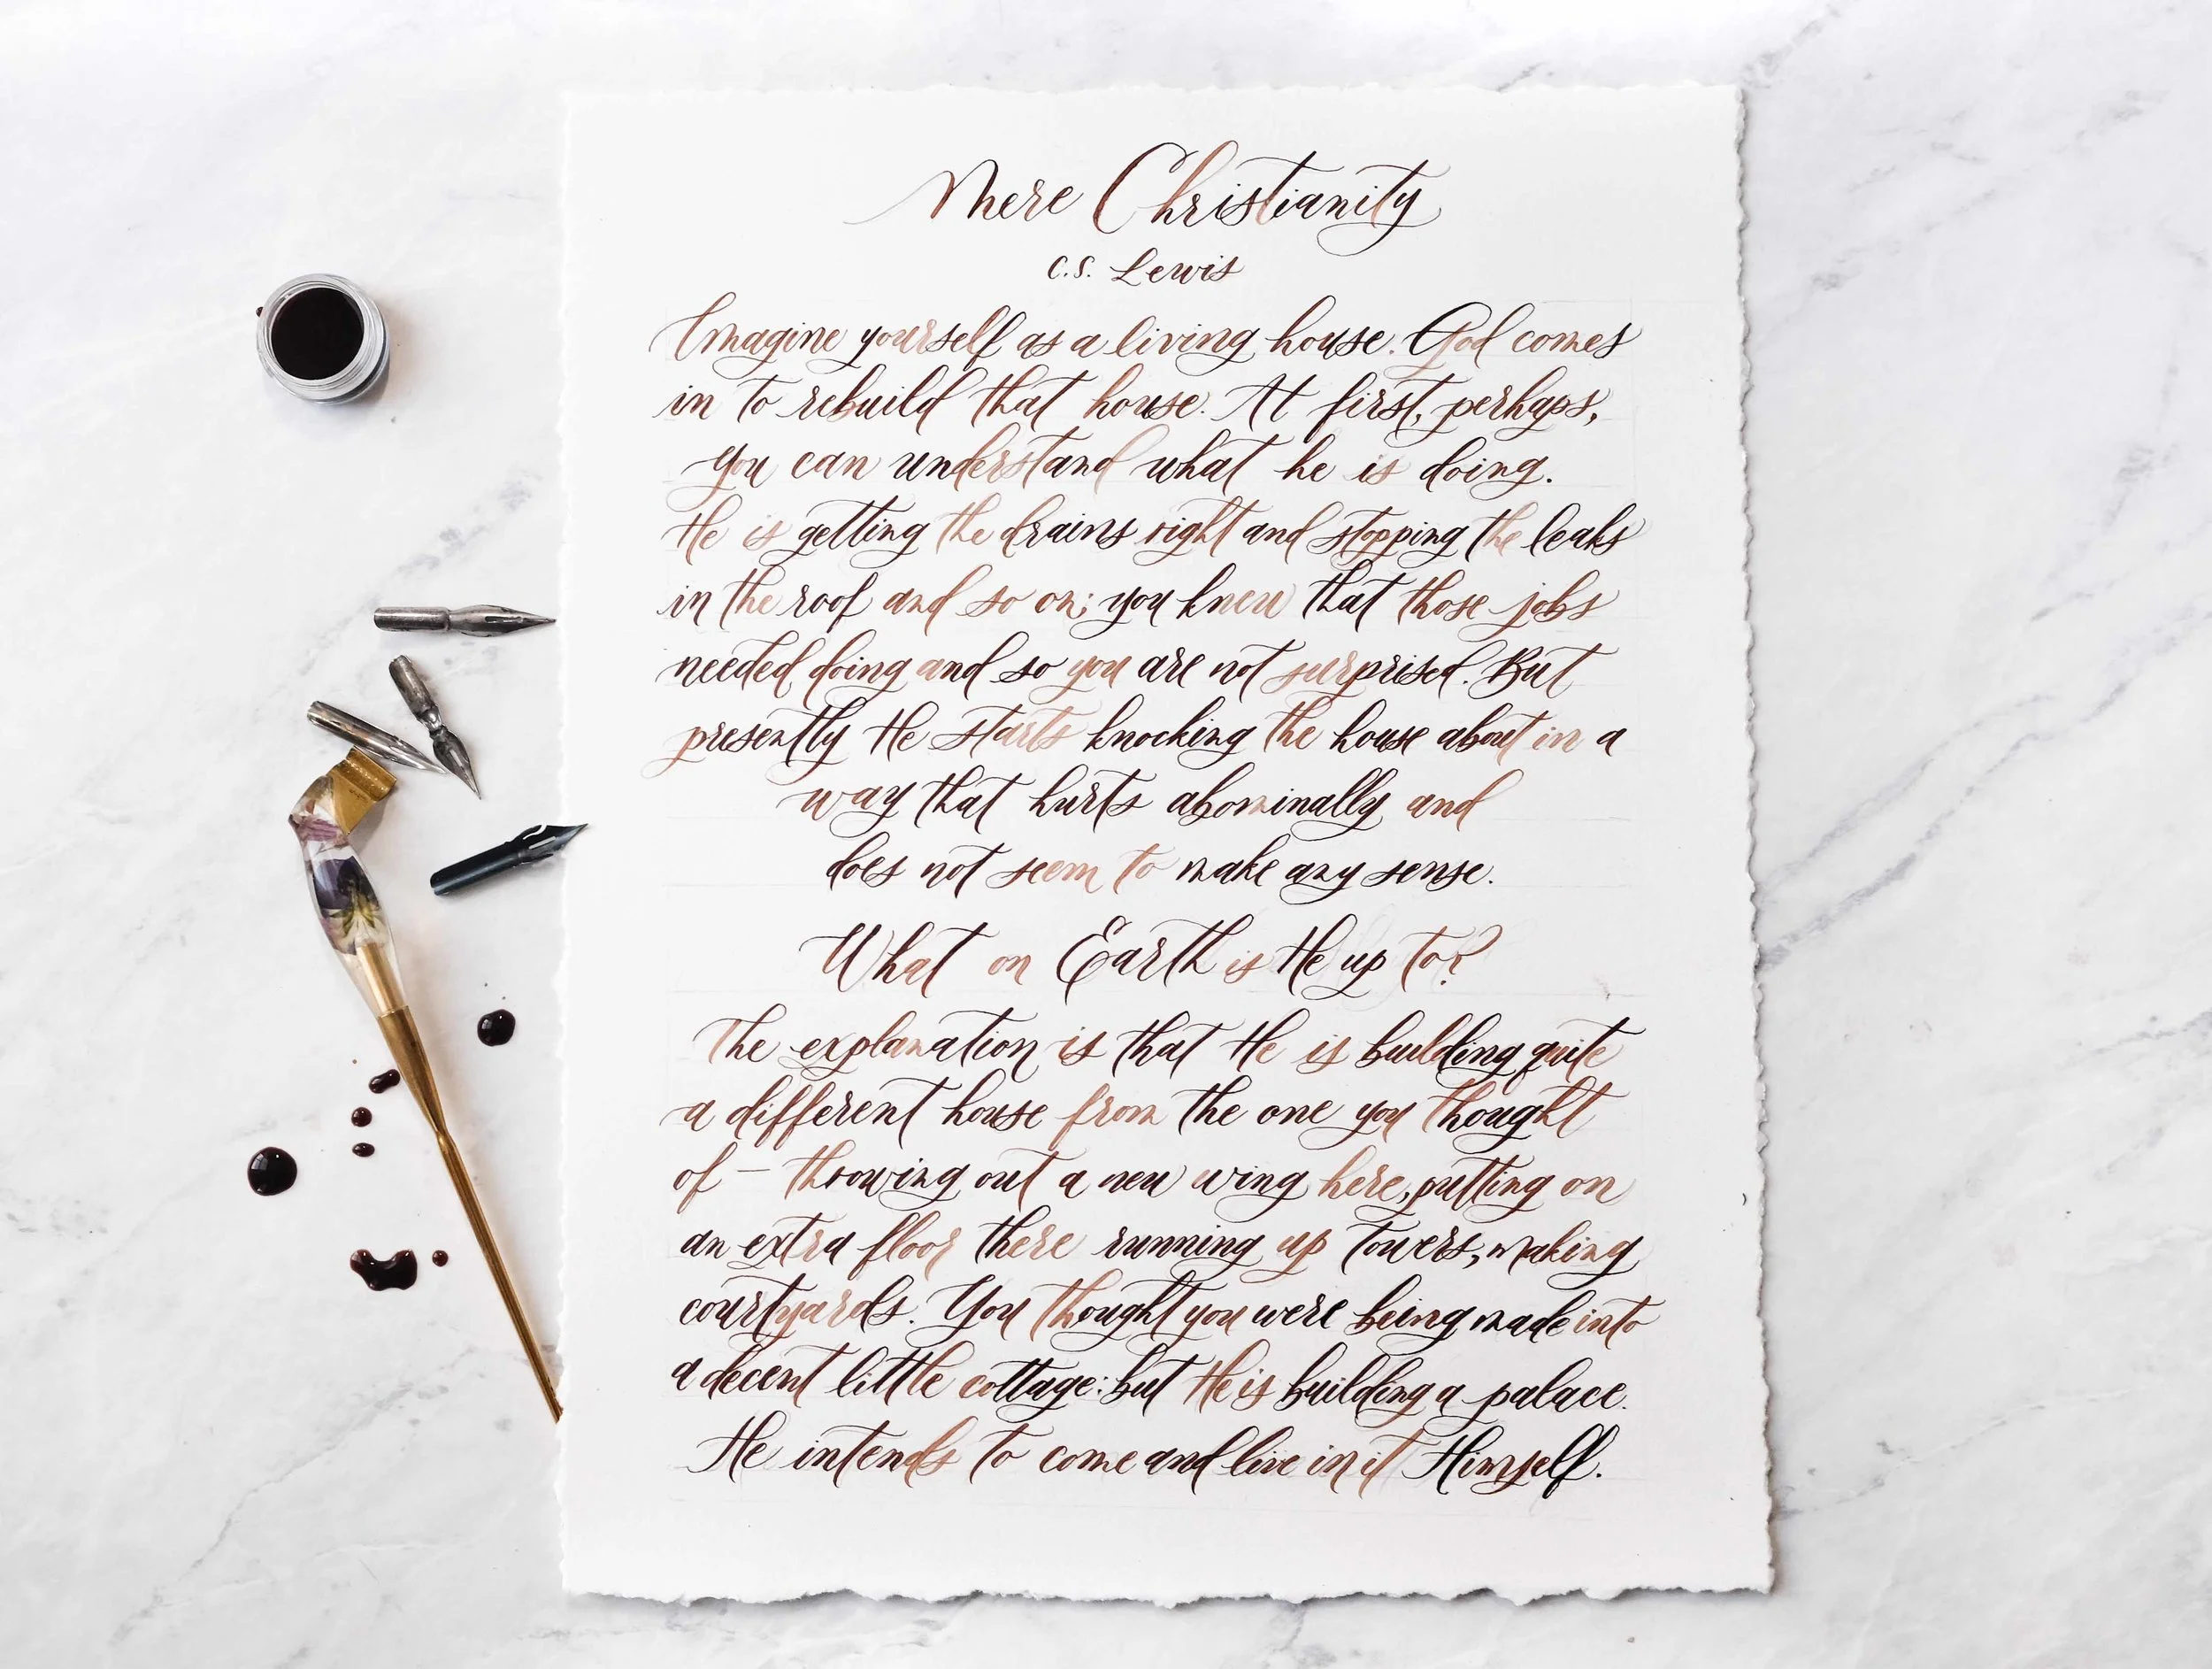 Mere Christianity
C.S. Lewis
Imagine yourself as a living house. God comes
in to rebuild that house. At first, perhaps,
you can understand what he is doing.
He is getting the drains right and stopping the leaks
in the roof and so on; you knew that those jobs
needed doing and so you are not surprised. But
presently He starts knocking the house about in a
way that hurts abominally and
does not seem to make any sense.
What on Earth is He up to?
The explanation is that He is building quite
a different house from the one you thought
of – throwing out a new wing here, putting on
an extra floor there running up towers, making
courtyards. You thought you were being made into
a decent little cottage: but He is building a palace.
He intends to come and live in it Himself.